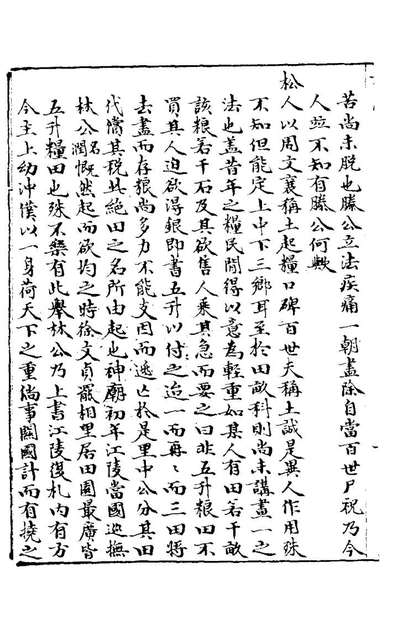 苦尚未脫也滕公立法疾痛一朝盡除自當百世尸祝乃今
人竝不知有滕公何歟
松人以周文襄稱土起糧口碑百世夫稱土誠是異人作用殊
不知但能定上中下三鄉耳至於田畝科則尚未講畫一之
法也蓋昔年之糧民間得以意為輕重如某人有田若干畝
該粮若干石及其欲售人乘其急而要之曰非五升粮田不
買其人迫欲得銀即書五升以付之迨一而再〻而三田將
去盡而存粮尚多力不能支因而逃亡於是里中公分其田
代償其稅此絕田之名所由起也神廟初年江陵當國巡撫
林公名潤慨然起而欲均之時徐文貞罷相里居田園最廣皆
五升糧田也殊不樂有此舉林公乃上書江陵復札内有方
今主上幼冲僕以一身荷天下之重倘事關國計而有撓之